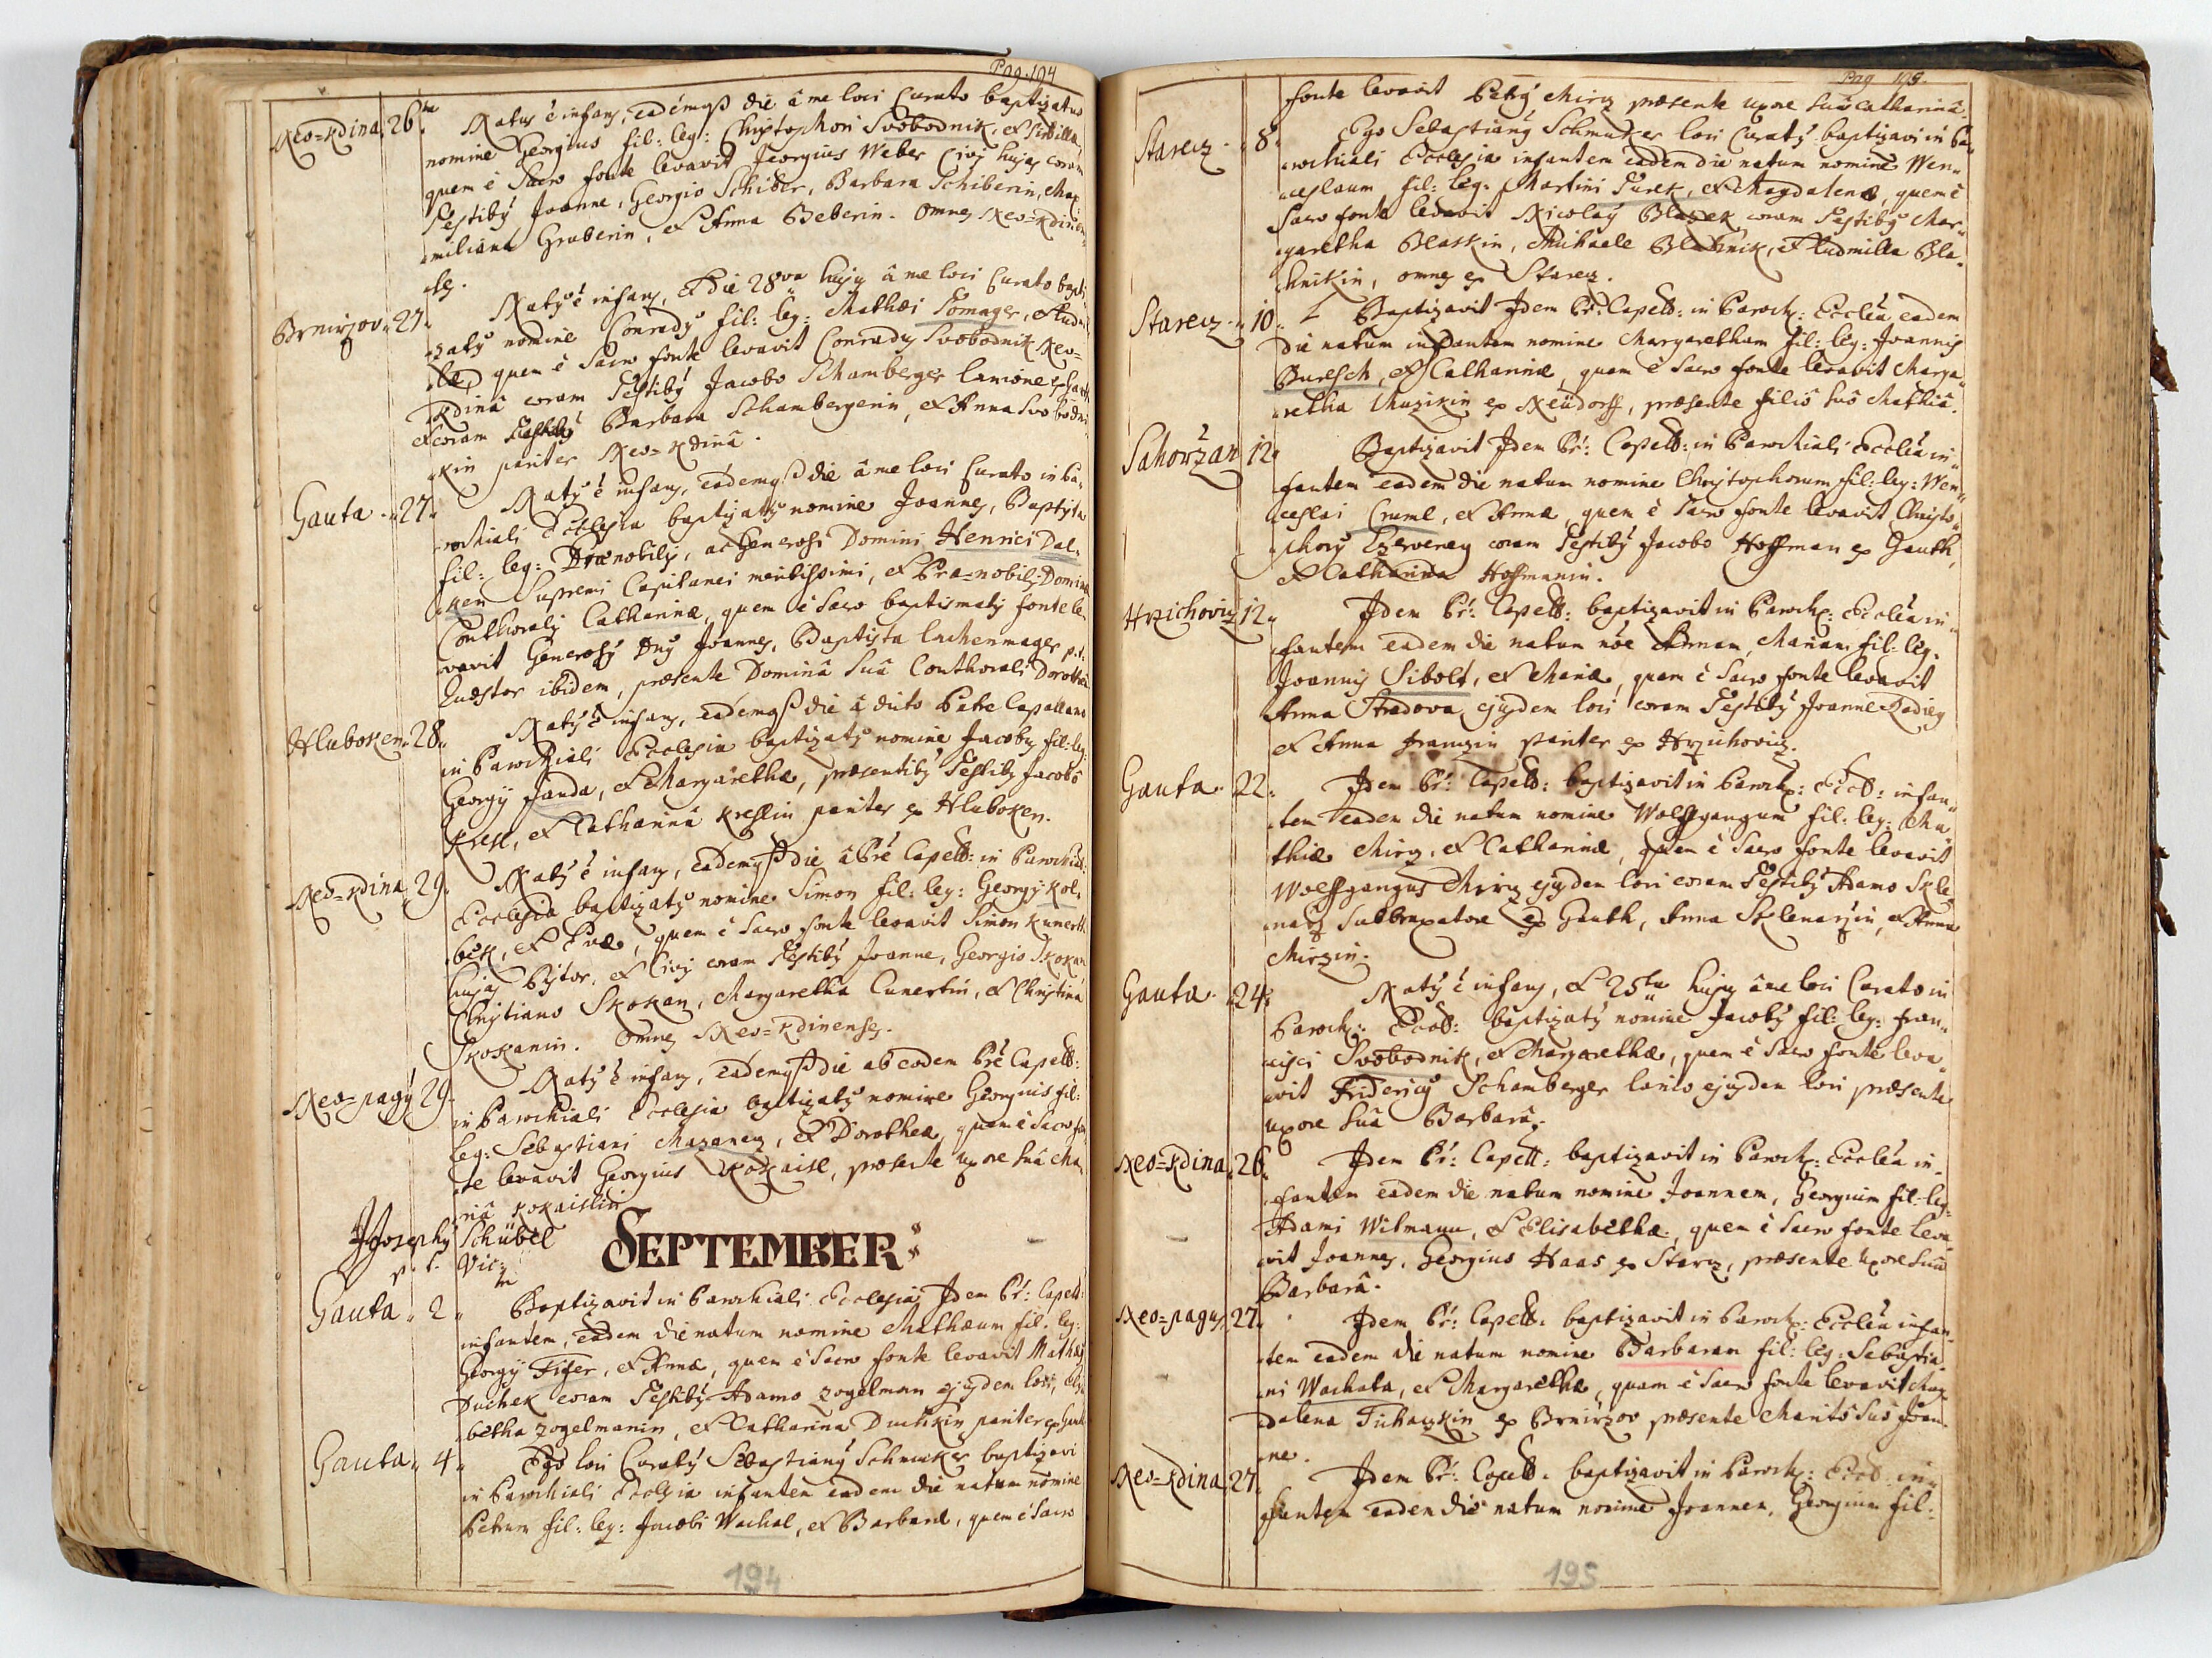 Pag. 194
Neo=Kdina. 26ta Natus ê infans, eadémqȝ die â me loci Curato baptizatus
nomine Georgius fil: leg: Christophori Svobodnik, et Sibilla,
quem ê Sacro fonte levavit Georgius Weber Civis hujas coram
Testibȝ Joanne, Georgio Schiber, Barbara Schiberin, Max„
„miliana Gruberin, et Anna Beberin. omnes Neo=Kdinen„
„ses.
Brnirzov. 27. Natȝ ê infans, et die 28va hujȝ â me loci Curato bapti„
„zatȝ nomine Conradȝ fil: leg: Mathæi Tomager, et Lud„
quem ê Sacro fonte levavit Conradȝ Svobodnik Neo=
Kdinâ coram Testibȝ Jacobo Schamberger lanione
et coram Barbara Schambergerin, et Anna Svobodni„
„kin pariter Neo=Kdinâ.
Gauta. 27. Natȝ ê infans, eadémqȝ die â me loci Curato in Pa„
„rochiali Ecclesia baptizatȝ nomine Joannes, Baptista
fil: leg: Prænobilis, ac Generosi Domini Henrici Dal„
„ken Supremi Capitanei meritissimi, et Præ=nobilis Dominæ
Conthoralis Catharinæ, quem ê Sacro baptismatis fonte le„
„vavit Generosȝ Dnȝ Joannes, Baptista Lachenmager p.t.
Quæstor ibidem, præsente Dominâ Suâ Conthorali Dorothea
Hluboken. 28. Natȝ ê infans, eadémqȝ die â dicto Patre Capellano
in Parochiali Ecclesia baptizatȝ nomine Jacobȝ fil: leg:
Georgij Janda, et Margarethæ, præsentibȝ Testibȝ Jacobô
Kresl, et Catharinâ Kreslin pariter ex Hluboken.
Neo=Kdina. 29. Natȝ ê infans, eadémqȝ die â Pre Capell: in Parochiali
Ecclesia baptizatȝ nomine Simon fil: leg: Georgij Kol„
„bek, et Evæ, quem ê Sacro fonte levavit Simon Kunerth
hujas Pistor, et Civis coram Testibȝ Joanne, Georgio Skokan
Christiano Skokan, Margaretha Cunertin, et Christina
Skokanin. omnes Neo=Kdinenses.
Neo=pagȝ 29. Natȝ ê infans, eadémqȝ die ab eodem Pre Capell:
in Parochiali Ecclesia baptizatȝ nomine Georgius fil:
leg: Sebastiani Mazanez, et Dorotheæ, quem ê Sacro fon„
„te levavit Georgius Kokaisl, præsente uxore Suâ Ma„
„riâ Kokaislin
Josephȝ Schübel
p. t. Vic:
SEPTEMBER:
Gauta. 2. Baptizavit in Parochiali Ecclesia Idem Pr: Capell:
infantem, eadem die natum nomine Mathæum fil: leg:
Georgij Fiser, et Annæ, quem ê Sacro fonte levavit Mathæȝ
Duchek coram Testibȝ Adamo Zogelman ejusdem loci, Elisa
„betha Zogelmanin, et Catharina Duchkin pariter ex Gauth
Gauta. 4. Ego loci Curatȝ Sebastianȝ Schmuker baptizavi
in Parochiali Ecclesia infantem eadem die natum nomine
Petrum fil: leg: Jacobi Wachal, et Barbaræ, quem ê Sacro
194
Pag 195.
fonte levavit Petrȝ Mirz præsente uxore Suâ Catharinâ.
Starecz. 8. Ego Sebastianȝ Schmuker loci Curatȝ baptizavi in Pa„
„rochiali Ecclesia infantem eadem die natum nomine Wen„
„ceslaum fil: leg: Martini Turek, et Magdalenæ, quem ê
Sacro fonte levavit Nicolaȝ Blazek coram Testibȝ Mar„
„garetha Blaskin, Michaele Blahnik, et Ludmilla Bla„
„hnikin, omnes ex Starecz.
Starecz. 10. Baptizavit Idem Pr: Capell: in Paroch: Ecclia eadem
Die natum infantem nomine Margaretham fil: leg: Joannis
Buresch, et Catharinæ, quam ê Sacro fonte levavit Marga„
„retha Muzikin ex Neüdorff, præsente filiô Suô Mathiâ.
Sahorzan 12. Baptizavit Idem Pr: Capell: in Parochiali Ecclia in„
„fantem eadem die natum nomine Christophorum fil: leg: Wen„
„ceslai Cruml, et Annæ, quem ê Sacro fonte levavit Christo„
„phorȝ Czerveney coram Testibȝ Jacobo Hoffman ex Gauth,
et Catharina Hoffmanin.
Hrzichovicz 12. Idem Pr: Capell: baptizavit in Paroch: Ecclia in„
„fantem eadem die natum nõe Annam, Mariam fil: leg:
Joannis Sibolt, et Mariæ, quam ê Sacro fonte levavit
Anna Stradova ejusdem loci coram Testibȝ Joanne Radiey
et Anna Franzin pariter ex Hrzichovicz.
Gauta. 22. Idem Pr: Capell: baptizavit in Paroch: Eccl: infan„
„tem eadem die natum nomine Wolffgangum fil: leg: Ma„
„thiæ Mirz, et Catharinæ, quem ê Sacro fonte levavit
Wolffgangus Mirz ejusdem loci coram Testibȝ Adamo Skle„
„narz ex Gauth, Anna Sklenarzin, et Anna
Mirzin.
Gauta. 24. Natȝ ê infans, et 25ta hujȝ â me loci Curato in
Paroch: Eccl: baptizatȝ nomine Jacobȝ fil: leg: Fran„
„cisci Svobodnik, et Margarethæ, quem ê Sacro fonte leva„
„vit Fridericȝ Schamberger lanio ejusdem loci præsente
uxore Suâ Barbarâ.
Neo=Kdina. 26. Idem Pr: Capell: baptizavit in Paroch: Ecclia in„
„fantem eadem die natum nomine Joannem, Georgium fil: leg:
Adami Wilmann, et Elisabethæ, quem ê Sacro fonte leva„
„vit Joannes, Georgius Haas ex Starcz, præsente uxore Suâ
Barbarâ.
Neo=pagus. 27. Idem Pr: Capell: baptizavit in Paroch: Ecclia infan„
„tem eadem die natum nomine Barbaram fil: leg: Sebastia„
„ni Wachata, et Margarethæ, quam ê Sacro fonte levavit Mag
„dalena Tichaczkin ex Brnirzov præsente Maritô Suô Joan„
„ne.
Neo=Kdina. 27. Idem Pr: Capell: baptizavit in Paroch: Eccl: in„
„fantem eadem die natum nomine Joannem, Georgium fil:
195